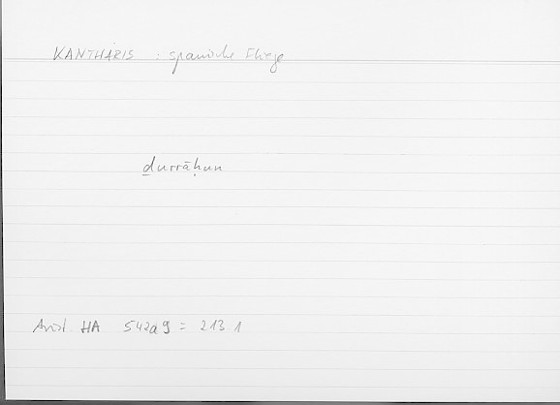 KANTHARIS : spanische Fliege
ḏurrāḥun
Arist. HA 542a9 = 213.1